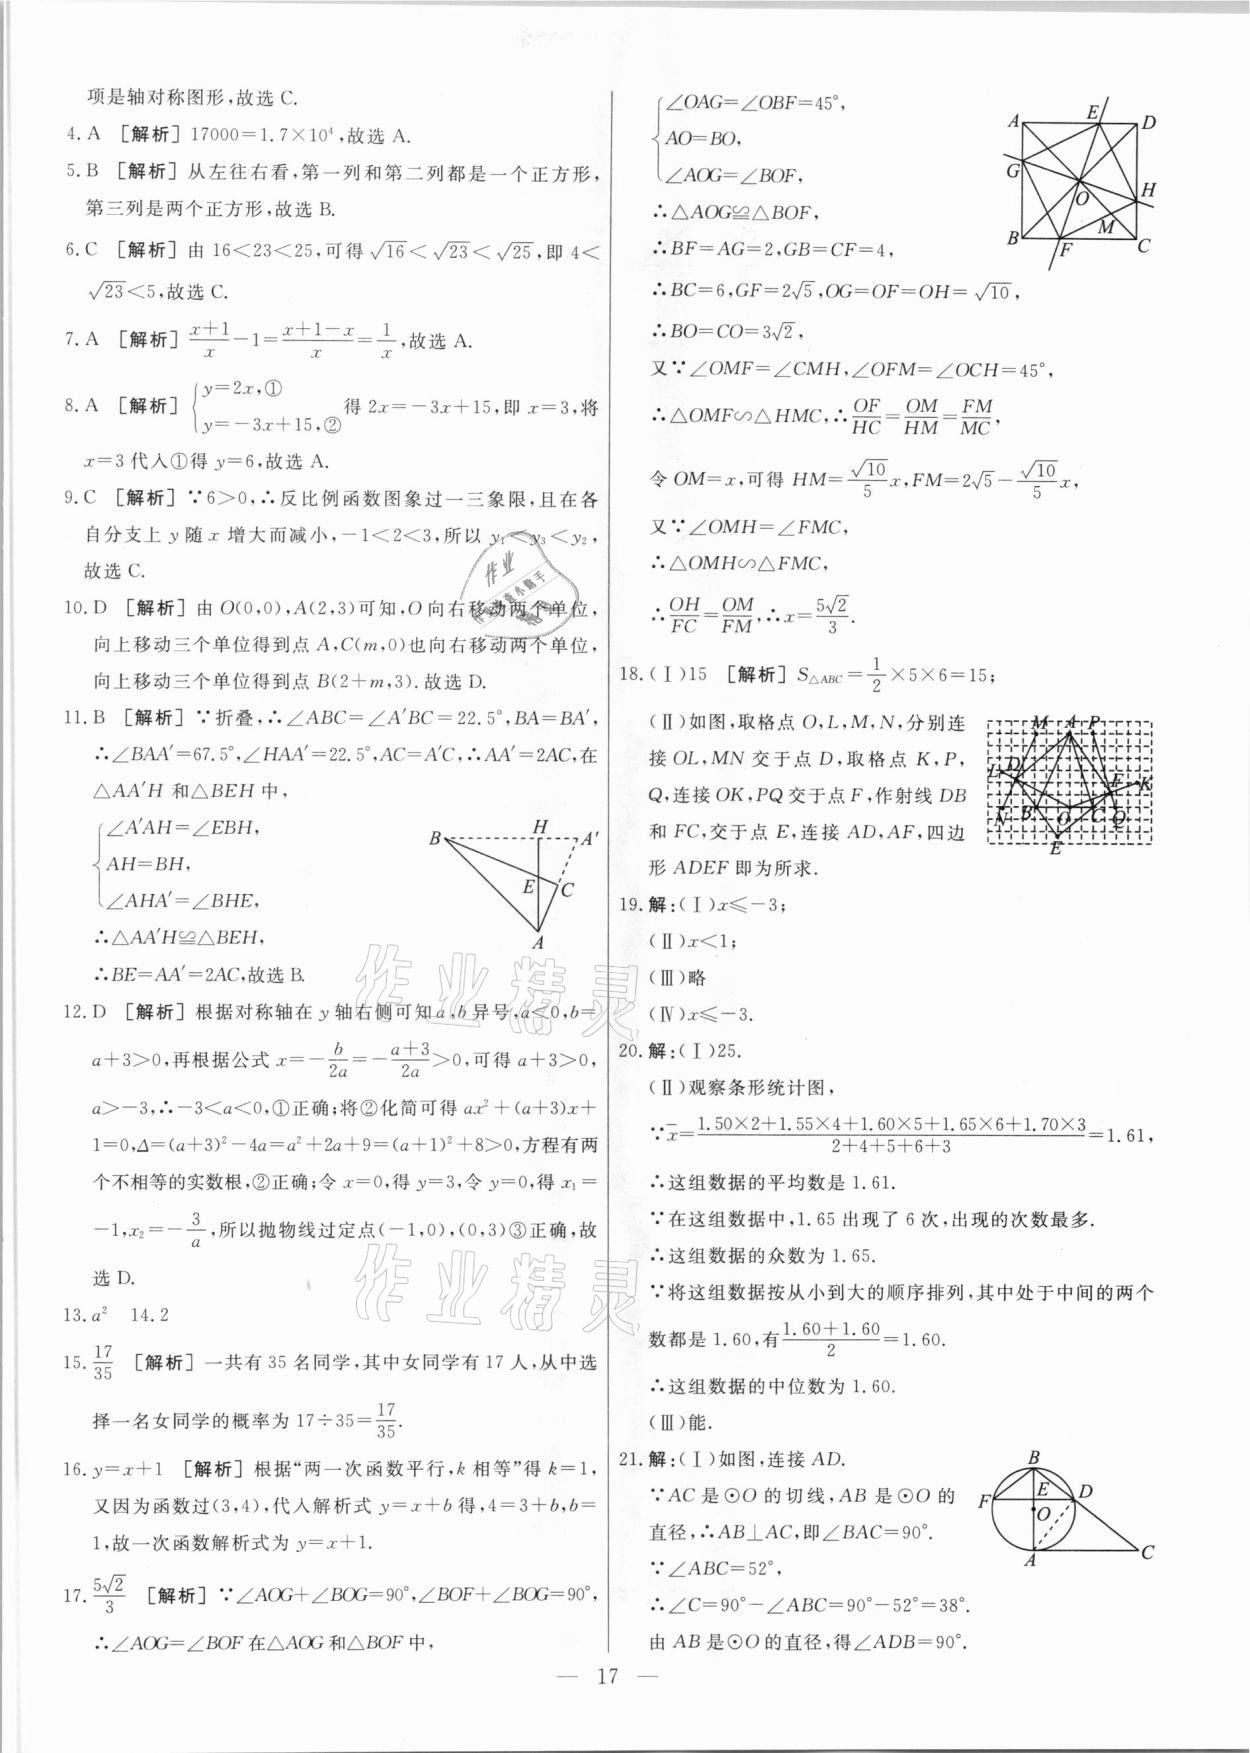 项是轴对称图形,故选 C.
4. A [解析] 17000=1.7×10⁴,故选 A.
5. B [解析] 从左往右看,第一列和第二列都是一个正方形,
第三列是两个正方形,故选 B.
6. C [解析] 由 16<23<25,可得 √16<√23<√25,即 4<
√23<5,故选 C.
7. A [解析] (x+1)/x-1=(x+1-x)/x=1/x,故选 A.
8. A [解析] {y=2x,① y=-3x+15,② 得 2x=-3x+15,即 x=3,将
x=3 代入①得 y=6,故选 A.
9. C [解析] ∵6>0,∴反比例函数图象过一三象限,且在各
自分支上 y 随 x 增大而减小,-1<2<3,所以 y₁<y₃<y₂,
故选 C.
10. D [解析] 由 O(0,0),A(2,3)可知,O 向右移动两个单位,
向上移动三个单位得到点 A,C(m,0)也向右移动两个单位,
向上移动三个单位得到点 B(2+m,3).故选 D.
11. B [解析] ∵折叠,∴∠ABC=∠A′BC=22.5°,BA=BA′,
∴∠BAA′=67.5°,∠HAA′=22.5°,AC=A′C,∴AA′=2AC,在
△AA′H 和△BEH 中,
∠A′AH=∠EBH,
AH=BH,
∠AHA′=∠BHE,
∴△AA′H≌△BEH,
∴BE=AA′=2AC,故选 B.
B H A′
E C
A
12. D [解析] 根据对称轴在 y 轴右侧可知 a,b 异号,a<0,b=
a+3>0,再根据公式 x=-b/2a=-(a+3)/2a>0,可得 a+3>0,
a>-3,∴-3<a<0,①正确;将②化简可得 ax²+(a+3)x+
1=0,Δ=(a+3)²-4a=a²+2a+9=(a+1)²+8>0,方程有两
个不相等的实数根,②正确;令 x=0,得 y=3,令 y=0,得 x₁=
-1,x₂=-3/a,所以抛物线过定点(-1,0),(0,3)③正确,故
选 D.
13. a² 14. 2
15. 17/35 [解析] 一共有 35 名同学,其中女同学有 17 人,从中选
择一名女同学的概率为 17÷35=17/35.
16. y=x+1 [解析] 根据“两一次函数平行,k 相等”得 k=1,
又因为函数过(3,4),代入解析式 y=x+b 得,4=3+b,b=
1,故一次函数解析式为 y=x+1.
17. 5√2/3 [解析] ∵∠AOG+∠BOG=90°,∠BOF+∠BOG=90°,
∴∠AOG=∠BOF 在△AOG 和△BOF 中,
∠OAG=∠OBF=45°,
AO=BO,
∠AOG=∠BOF,
∴△AOG≌△BOF,
∴BF=AG=2,GB=CF=4,
∴BC=6,GF=2√5,OG=OF=OH=√10,
∴BO=CO=3√2,
A E D
G
O H
M
B F C
又∵∠OMF=∠CMH,∠OFM=∠OCH=45°,
∴△OMF∽△HMC,∴OF/HC=OM/HM=FM/MC,
令 OM=x,可得 HM=√10/5 x,FM=2√5-√10/5 x,
又∵∠OMH=∠FMC,
∴△OMH∽△FMC,
∴OH/FC=OM/FM,∴x=5√2/3.
18. (Ⅰ)15 [解析] S△ABC=1/2×5×6=15;
(Ⅱ)如图,取格点 O,L,M,N,分别连
接 OL,MN 交于点 D,取格点 K,P,
Q,连接 OK,PQ 交于点 F,作射线 DB
和 FC,交于点 E,连接 AD,AF,四边
形 ADEF 即为所求.
M A P
L D F K
N B O C Q
E
19. 解:(Ⅰ)x≤-3;
(Ⅱ)x<1;
(Ⅲ)略
(Ⅳ)x≤-3.
20. 解:(Ⅰ)25.
(Ⅱ)观察条形统计图,
∵x̄=(1.50×2+1.55×4+1.60×5+1.65×6+1.70×3)/(2+4+5+6+3)=1.61,
∴这组数据的平均数是 1.61.
∵在这组数据中,1.65 出现了 6 次,出现的次数最多.
∴这组数据的众数为 1.65.
∵将这组数据按从小到大的顺序排列,其中处于中间的两个
数都是 1.60,有(1.60+1.60)/2=1.60.
∴这组数据的中位数为 1.60.
(Ⅲ)能.
21. 解:(Ⅰ)如图,连接 AD.
∵AC 是⊙O 的切线,AB 是⊙O 的
直径,∴AB⊥AC,即∠BAC=90°.
∵∠ABC=52°,
∴∠C=90°-∠ABC=90°-52°=38°.
由 AB 是⊙O 的直径,得∠ADB=90°.
B
F E D
O
A C
作业精灵
作业精灵
— 17 —